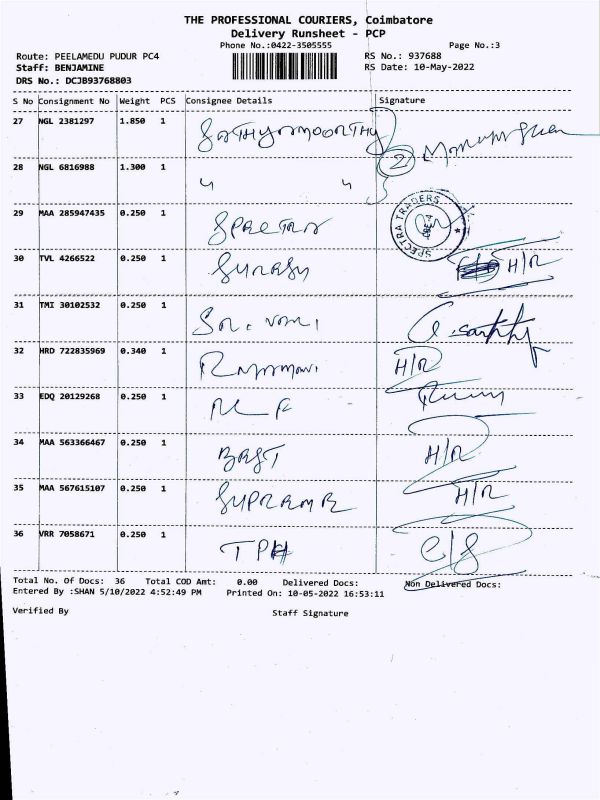 THE PROFESSIONAL COURIERS, Coimbatore
Delivery Runsheet - PCP
Phone No.:0422-3505555 Page No.:3
Route: PEELAMEDU PUDUR PC4 RS No.: 937688
Staff: BENJAMINE RS Date: 10-May-2022
DRS No.: DCJB93768803
S No Consignment No Weight PCS Consignee Details Signature
27 NGL 2381297 1.850 1 SATHYAMOORTHY 2
28 NGL 6816988 1.300 1 " "
29 MAA 285947435 0.250 1 SPECTRA SPECTRA TRADERS
30 TVL 4266522 0.250 1 H/R
31 TMI 30102532 0.250 1
32 HRD 722835969 0.340 1 H/R
33 EDQ 20129268 0.250 1
34 MAA 563366467 0.250 1 BAST H/R
35 MAA 567615107 0.250 1 H/R
36 VRR 7058671 0.250 1 TPH
Total No. Of Docs: 36 Total COD Amt: 0.00 Delivered Docs: Non Delivered Docs:
Entered By :SHAN 5/10/2022 4:52:49 PM Printed On: 10-05-2022 16:53:11
Verified By Staff Signature